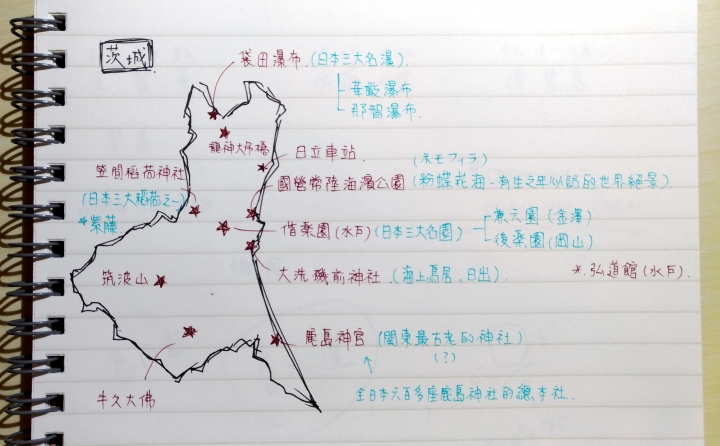 茨城
袋田瀑布 (日本三大名瀑)
華嚴瀑布
那智瀑布
龍神大吊橋
日立車站
笠間稻荷神社
(日本三大稻荷之一)
*紫藤
(ネモフィラ)
國營常陸海濱公園 (粉蝶花海-有生之年必訪的世界絕景)
偕楽園(水戶) (日本三大名園)
兼六園(金澤)
後楽園(岡山)
大洗磯前神社 (海上鳥居、日出)
*.弘道館(水戶)
筑波山
鹿島神宮 (関東最古老的神社)
(?)
全日本六百多座鹿島神社的總本社.
牛久大佛